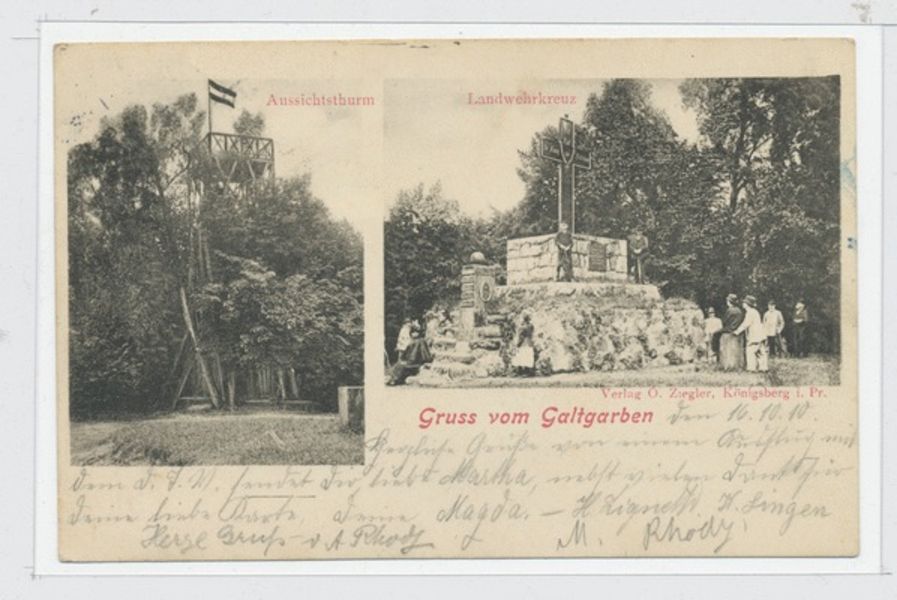 Aussichtsthurm
Landwehrkreuz
Verlag O. Ziegler, Königsberg i. Pr.
Gruss vom Galtgarben
den 16.10.10.
Herzliche Grüße von einem Ausflug mit
dem D. T. V. sendet dir liebe Martha, nebst vielen Dank für
deine liebe Karte, Deine Magda. – H. K. Singen
Herzl Gruß v. A Rhody M. Rhody